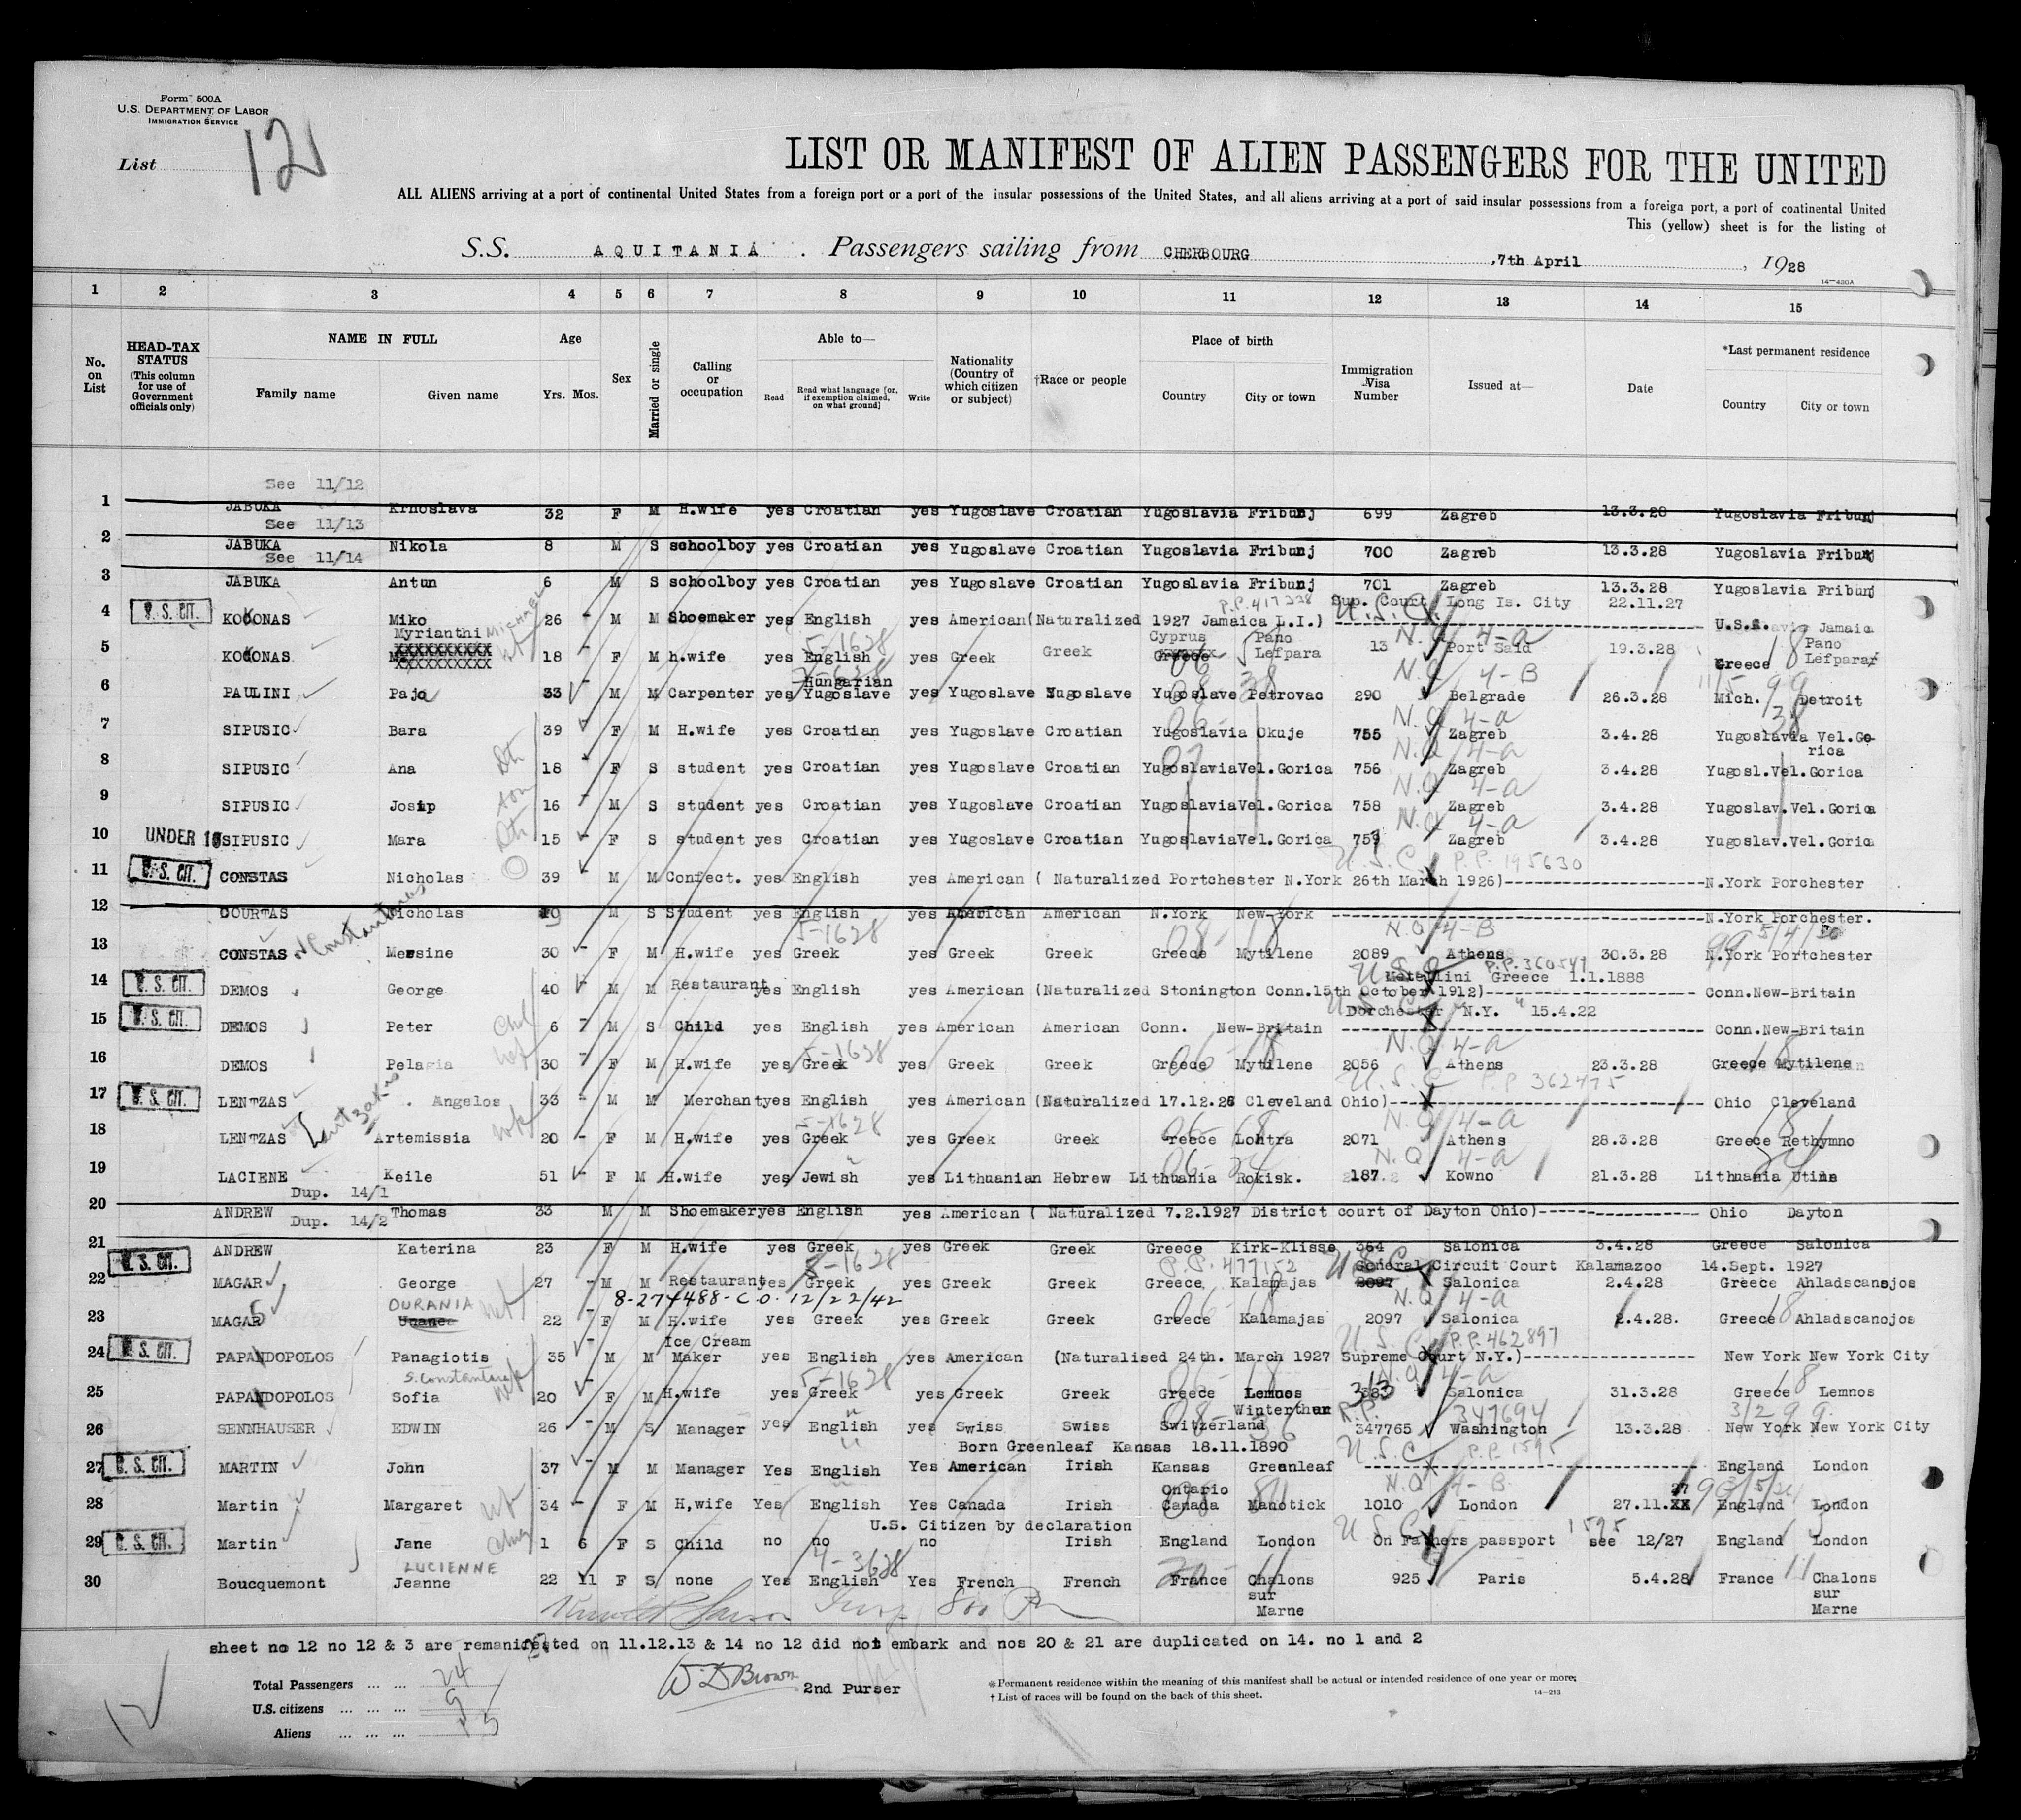 Form 500A
U.S. DEPARTMENT OF LABOR
IMMIGRATION SERVICE
List 12
LIST OR MANIFEST OF ALIEN PASSENGERS FOR THE UNITED
ALL ALIENS arriving at a port of continental United States from a foreign port or a port of the insular possessions of the United States, and all aliens arriving at a port of said insular possessions from a foreign port, a port of continental United
This (yellow) sheet is for the listing of
S.S. AQUITANIA. Passengers sailing from CHERBOURG, 7th April, 1928
14-430A
1 2 3 4 5 6 7 8 9 10 11 12 13 14 15
No. on List
HEAD-TAX STATUS (This column for use of Government officials only)
NAME IN FULL Family name Given name
Age Yrs. Mos.
Sex
Married or single
Calling or occupation
Able to— Read Read what language [or, if exemption claimed, on what ground] Write
Nationality (Country of which citizen or subject)
†Race or people
Place of birth Country City or town
Immigration Visa Number
Issued at—
Date
*Last permanent residence Country City or town
See 11/12
1 JABUKA Krnoslava 32 F M H.wife yes Croatian yes Yugoslave Croatian Yugoslavia Fribunj 699 Zagreb 13.3.28 Yugoslavia Fribunj
See 11/13
2 JABUKA Nikola 8 M S schoolboy yes Croatian yes Yugoslave Croatian Yugoslavia Fribunj 700 Zagreb 13.3.28 Yugoslavia Fribunj
See 11/14
3 JABUKA Antun 6 M S schoolboy yes Croatian yes Yugoslave Croatian Yugoslavia Fribunj 701 Zagreb 13.3.28 Yugoslavia Fribunj
P.P. 417228 Sup. Court Long Is. City 22.11.27
4 U.S. CIT. KOKONAS Miko MICHAEL 26 M M Shoemaker yes English yes American (Naturalized 1927 Jamaica L.I.) U.S.C. U.S.A. Jamaica
Myrianthi 5-1628 Cyprus Pano N.Q. 4-a Pano
5 KOKONAS XXXXXXXXXX wf 18 F M h.wife yes English yes Greek Greek Greece Lefpara 13 Port Said 19.3.28 Greece 18 Lefpara
7-628 Hungarian N.Q. 4-B 11/5 99
6 PAULINI Pajo 33 M M Carpenter yes Yugoslave yes Yugoslave Yugoslave Yugoslave Petrovac 290 Belgrade 26.3.28 Mich. Detroit
N.Q. 4-a 38
7 SIPUSIC Bara 39 F M H.wife yes Croatian yes Yugoslave Croatian Yugoslavia Okuje 755 Zagreb 3.4.28 Yugoslavia Vel.Go-
rica
N.Q. 4-a
8 SIPUSIC Ana Dtr 18 F S student yes Croatian yes Yugoslave Croatian Yugoslavia Vel.Gorica 756 Zagreb 3.4.28 Yugosl.Vel.Gorica
N.Q. 4-a
9 SIPUSIC Josip son 16 M S student yes Croatian yes Yugoslave Croatian Yugoslavia Vel.Gorica 758 Zagreb 3.4.28 Yugoslav.Vel.Gorica
N.Q. 4-a
10 UNDER 16 SIPUSIC Mara Dtr 15 F S student yes Croatian yes Yugoslave Croatian Yugoslavia Vel.Gorica 759 Zagreb 3.4.28 Yugoslav.Vel.Gorica
U.S.C. P.P. 195630
11 U.S. CIT. CONSTAS Nicholas 39 M M Confect. yes English yes American ( Naturalized Portchester N.York 26th March 1926) N.York Porchester
12 COURTAS Nicholas 19 M S Student yes English yes American American N.York New-York N.York Porchester.
Constantares 5-1628 N.Q. 4-B 99 5/4/
13 CONSTAS Messine 30 F M H.wife yes Greek yes Greek Greek Greece Mytilene 2089 Athens 30.3.28 N.York Portchester
U.S.C. P.P. 360549 Metellini Greece 1.1.1888
14 U.S. CIT. DEMOS George 40 M M Restaurant yes English yes American (Naturalized Stonington Conn.15th October 1912) Conn.New-Britain
U.S.C. Dorchester N.Y. 15.4.22
15 U.S. CIT. DEMOS Peter Chd 6 M S Child yes English yes American American Conn. New-Britain Conn.New-Britain
5-1628 N.Q. 4-a 18
16 DEMOS Pelagia wf 30 F M H.wife yes Greek yes Greek Greek Greece Mytilene 2056 Athens 23.3.28 Greece Mytilene
U.S.C. P.P. 362475
17 U.S. CIT. LENTZAS Angelos 33 M M Merchant yes English yes American (Naturalized 17.12.26 Cleveland Ohio) Ohio Cleveland
Lentzakis 5-1628 N.Q. 4-a 18
18 LENTZAS Artemissia wf 20 F M H.wife yes Greek yes Greek Greek Greece Lontra 2071 Athens 28.3.28 Greece Rethymno
N.Q. 4-a
19 LACIENE Keile 51 F M H.wife yes Jewish yes Lithuanian Hebrew Lithuania Rokisk. 187 Kowno 21.3.28 Lithuania Utina
Dup. 14/1
20 ANDREW Thomas 33 M M Shoemaker yes English yes American ( Naturalized 7.2.1927 District court of Dayton Ohio) Ohio Dayton
Dup. 14/2
21 ANDREW Katerina 23 F M H.wife yes Greek yes Greek Greek Greece Kirk-Klisse 364 Salonica 3.4.28 Greece Salonica
U.S. CIT. 5-1628 P.P. 477152 U.S.C. General Circuit Court Kalamazoo 14.Sept. 1927
22 MAGAR George 27 M M Restaurant yes Greek yes Greek Greek Greece Kalamajas 2097 Salonica 2.4.28 Greece Ahladscanojos
OURANIA 8-274488-C.O. 12/22/42 N.Q. 4-a
23 MAGARS Unanec wf 22 F M H.wife yes Greek yes Greek Greek Greece Kalamajas 2097 Salonica 2.4.28. Greece 18 Ahladscanojos
Ice Cream U.S.C. P.P. 462897
24 U.S. CIT. PAPANDOPOLOS Panagiotis 35 M M Maker yes English yes American (Naturalised 24th. March 1927 Supreme Court N.Y.) New York New York City
5-1628 N.Q. 4-a
25 PAPANDOPOLOS Sofia wf 20 F M H.wife yes Greek yes Greek Greek Greece Lemnos 313 Salonica 31.3.28 Greece 18 Lemnos
Winterthur P.P. 347694 3/2 99
26 SENNHAUSER EDWIN 26 M S Manager yes English yes Swiss Swiss Switzerland 347765 Washington 13.3.28 New York New York City
Born Greenleaf Kansas 18.11.1890 U.S.C. P.P. 1595
27 U.S. CIT. MARTIN John 37 M M Manager Yes English Yes American Irish Kansas Greenleaf England London
Ontario N.Q. 4-B. 27
28 Martin Margaret wf 34 F M H,wife Yes English Yes Canada Irish Canada Manotick 1010 London 27.11.XX England London
U.S. Citizen by declaration U.S.C. 1595
29 U.S. CIT. Martin Jane 1 6 F S Child no no no Irish England London On Fathers passport see 12/27 England London
LUCIENNE 4-3628
30 Boucquemont Jeanne 22 11 F S none Yes English Yes French French France Chalons 925 Paris 5.4.28 France 11 Chalons
sur sur
Marne Marne
sheet no 12 no 12 & 3 are remanifested on 11.12.13 & 14 no 12 did not embark and nos 20 & 21 are duplicated on 14. no 1 and 2
Total Passengers 24
U.S. citizens 9
Aliens 15
W D Brown 2nd Purser
* Permanent residence within the meaning of this manifest shall be actual or intended residence of one year or more.
† List of races will be found on the back of this sheet.
14-213
12